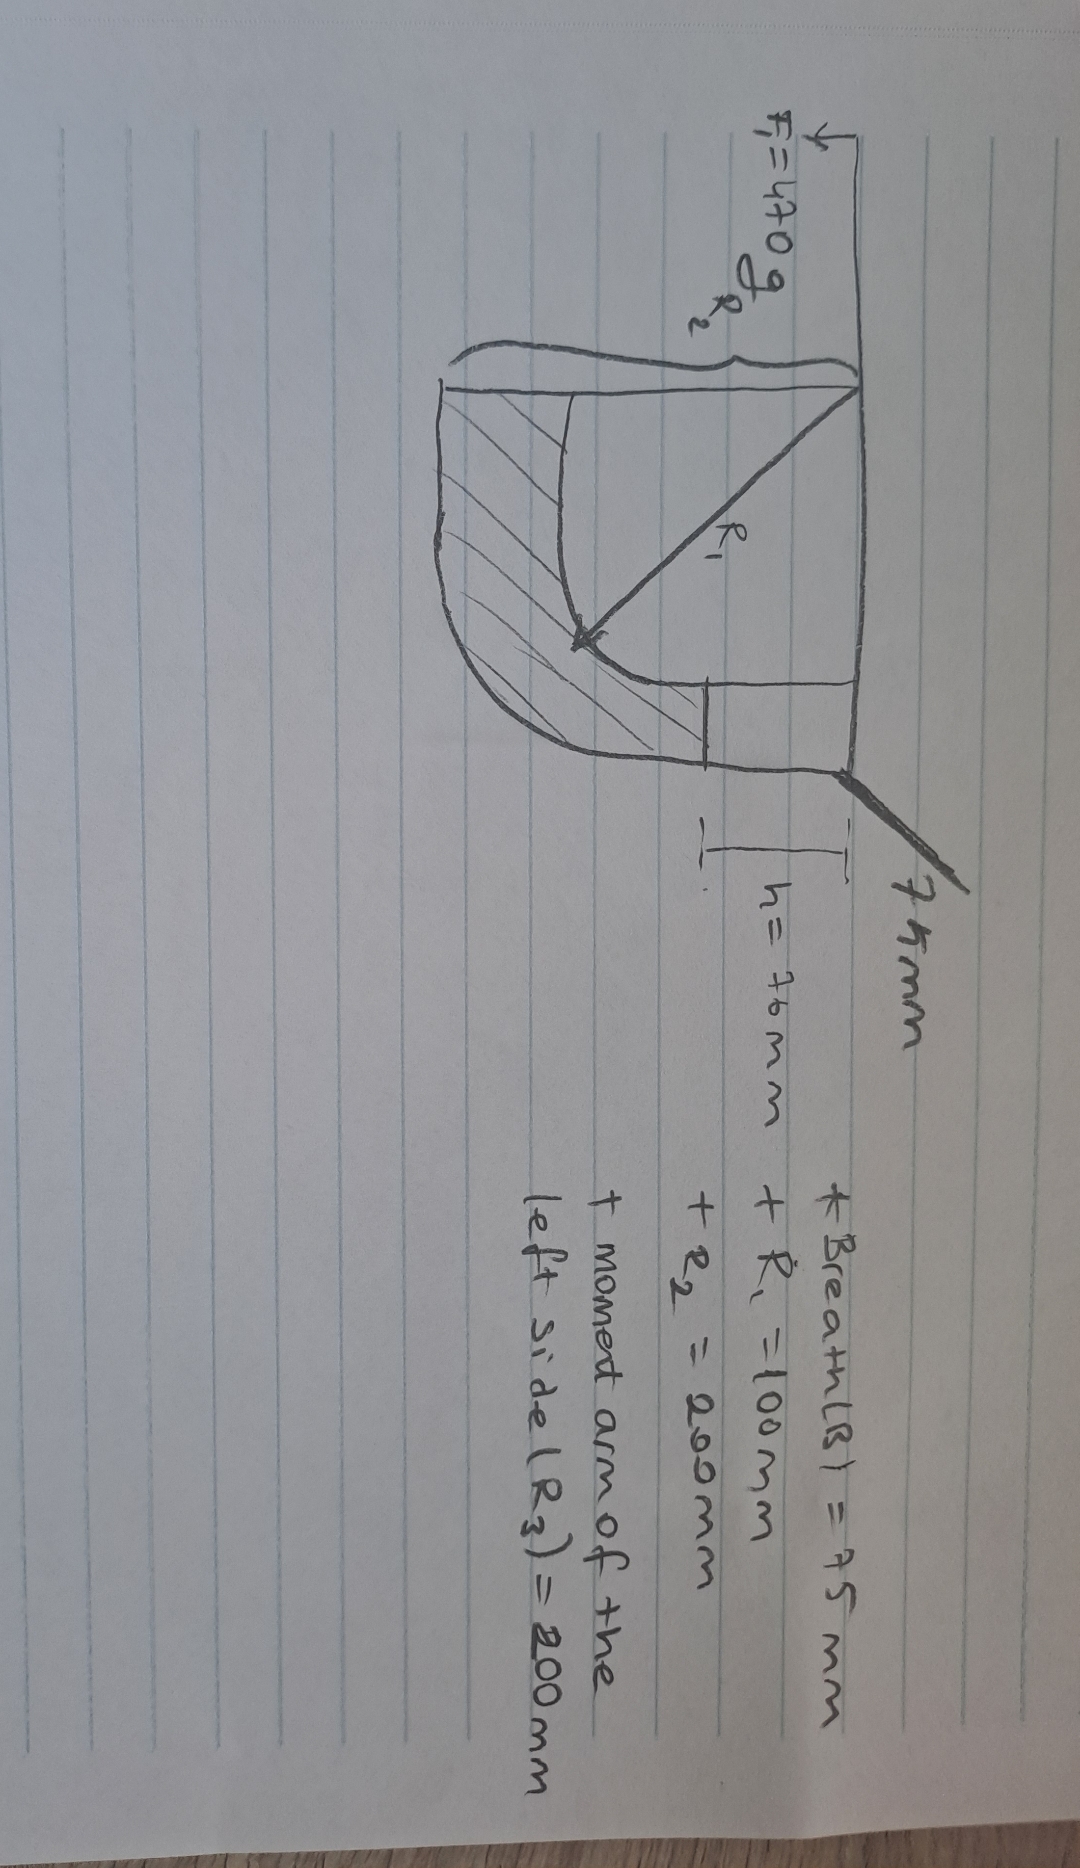 F₁=470g
R₂
R₁
75mm
h=70mm
+ Breath(B) = 75 mm
+ R₁ =100mm
+ R₂ = 200mm
+ moment arm of the
left side(R₃)= 200mm